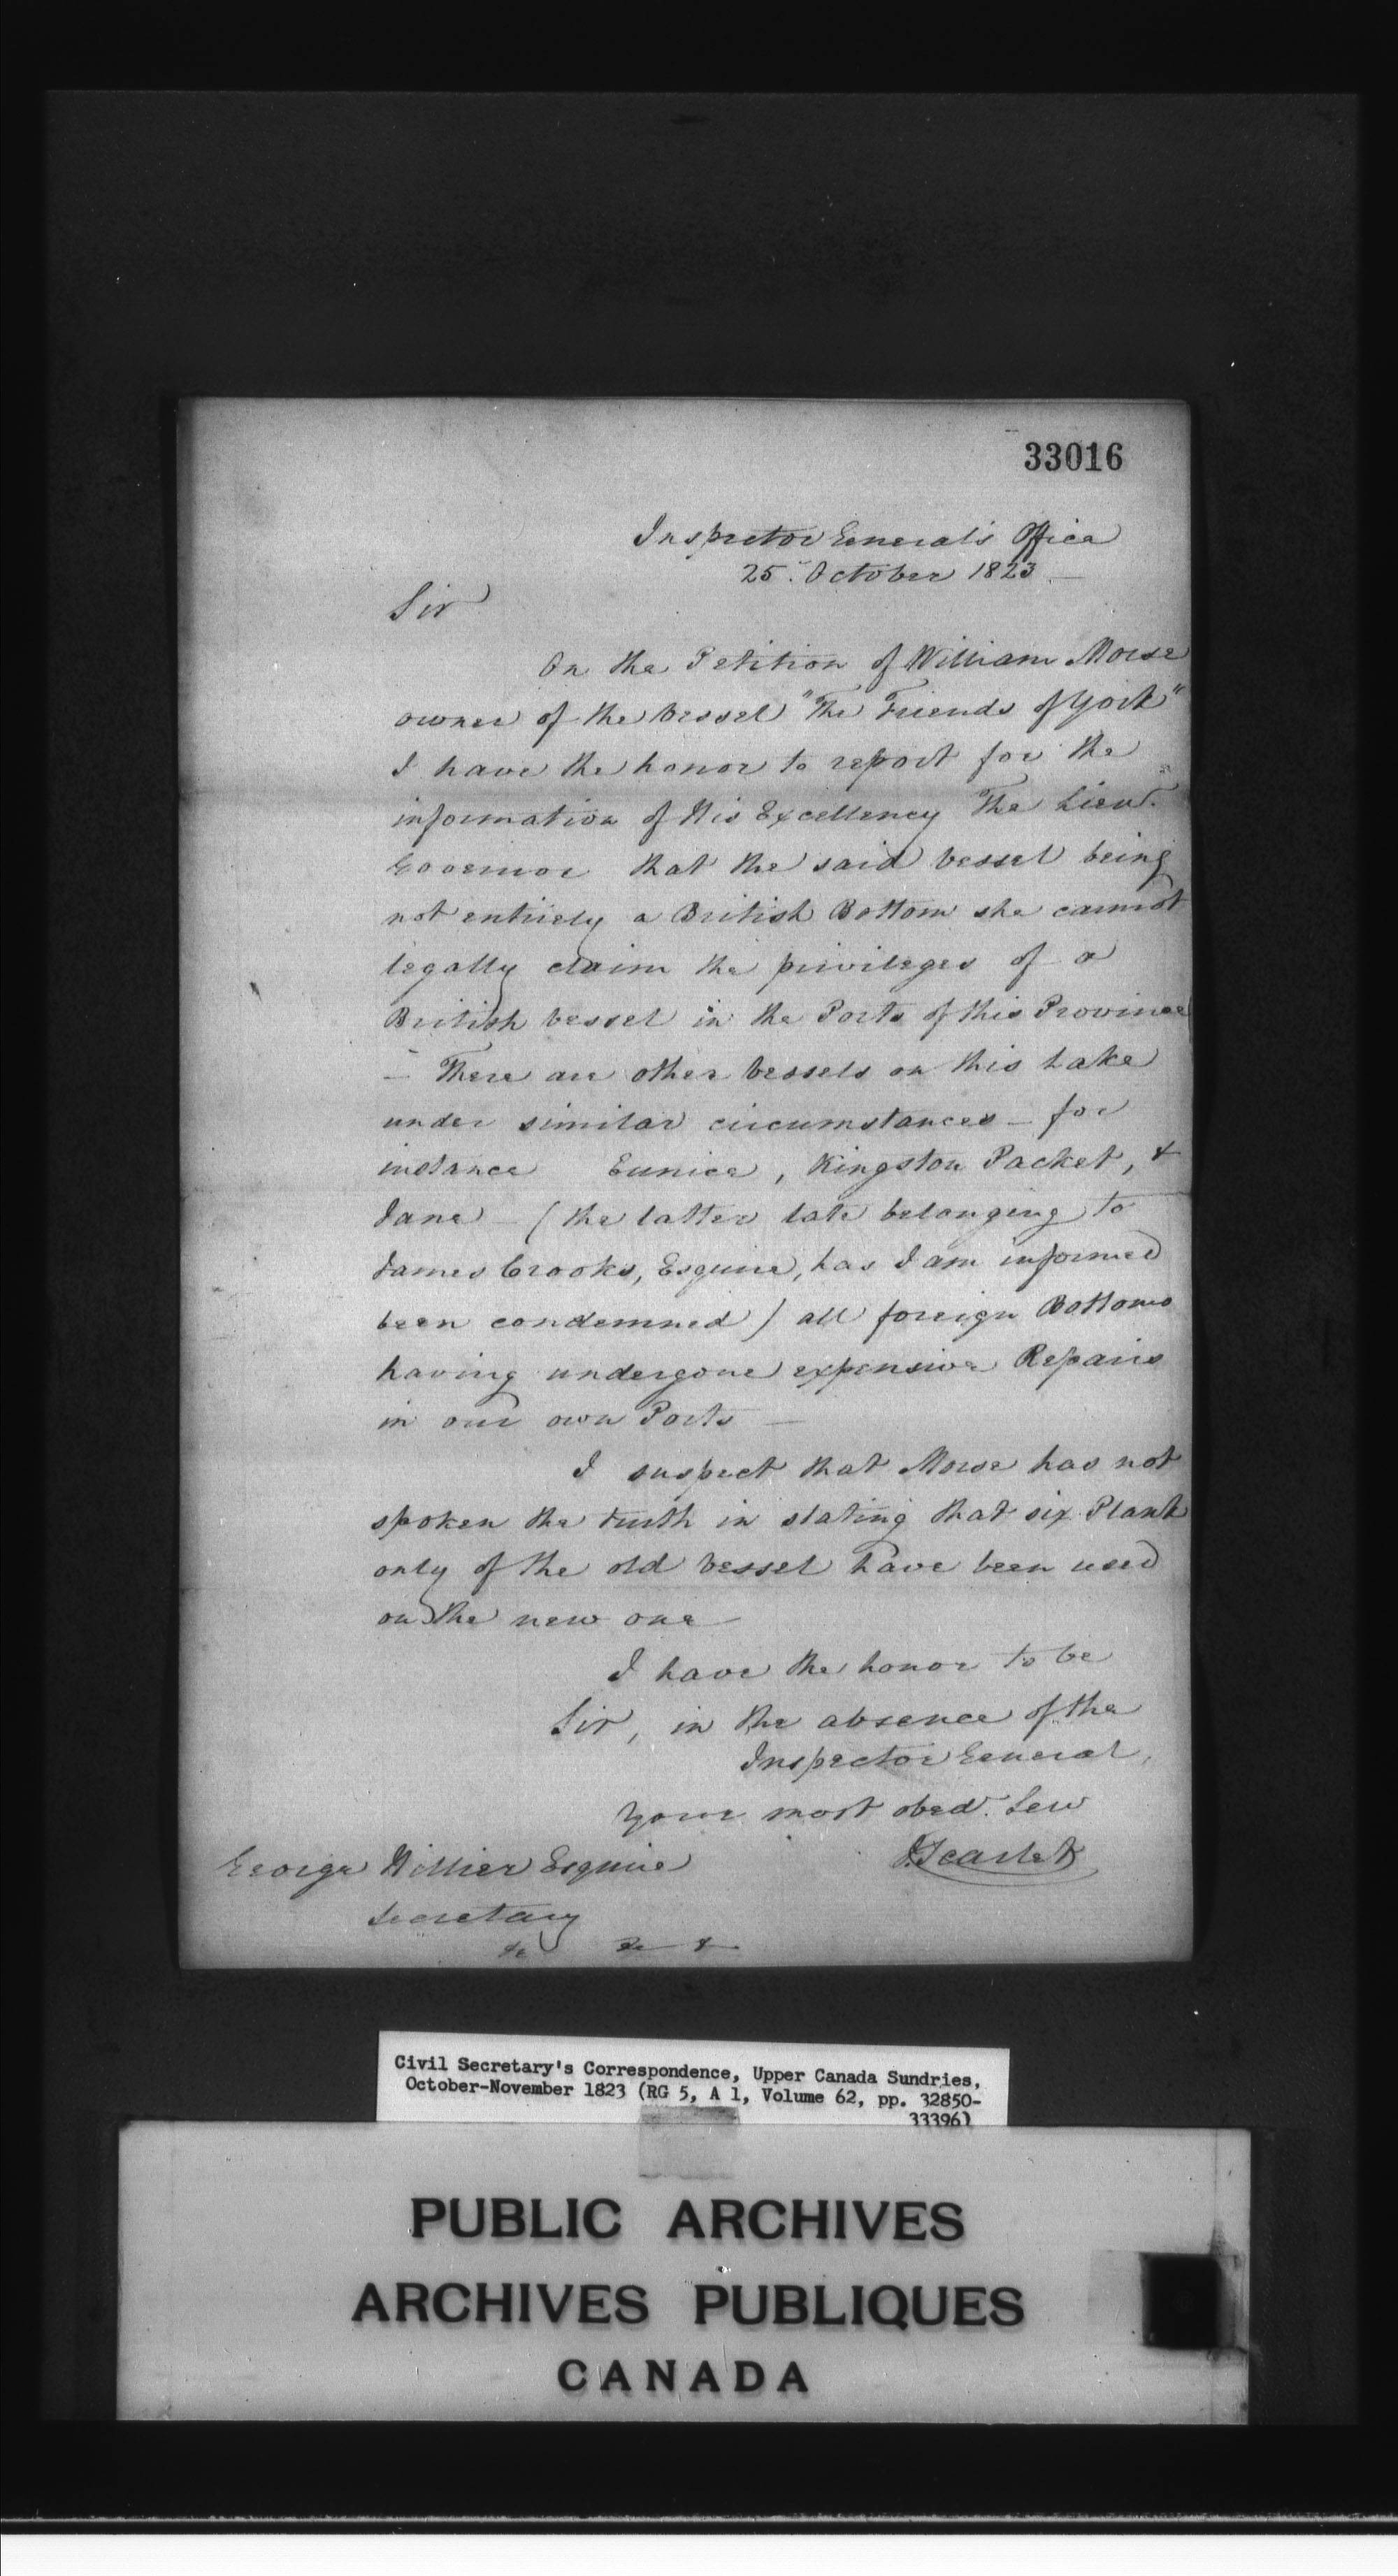 33016
Inspector General's Office
25. October 1823 —
Sir
On the Petition of William Morse
owner of the vessel "The Friends of York"
I have the honor to report for the
information of His Excellency The Lieut.
Governor that the said vessel being
not entirely a British Bottom she cannot
legally claim the privileges of a
British vessel in the Ports of this Province
— There are other vessels on this Lake
under similar circumstances — for
instance Eunice, Kingston Packet, &
Jane — (the latter late belonging to
James Crooks, Esquire, has I am informed
been condemned) all foreign Bottoms
having undergone expensive Repairs
in our own Ports —
I suspect that Morse has not
spoken the truth in stating that six Plank
only of the old vessel have been used
on the new one —
I have the honor to be
Sir, in the absence of the
Inspector General,
Your most obed. Serv
J Scarlett
George Hillier Esquire
Secretary
&c &c &
Civil Secretary's Correspondence, Upper Canada Sundries,
October-November 1823 (RG 5, A 1, Volume 62, pp. 32850-
33396)
PUBLIC ARCHIVES
ARCHIVES PUBLIQUES
CANADA